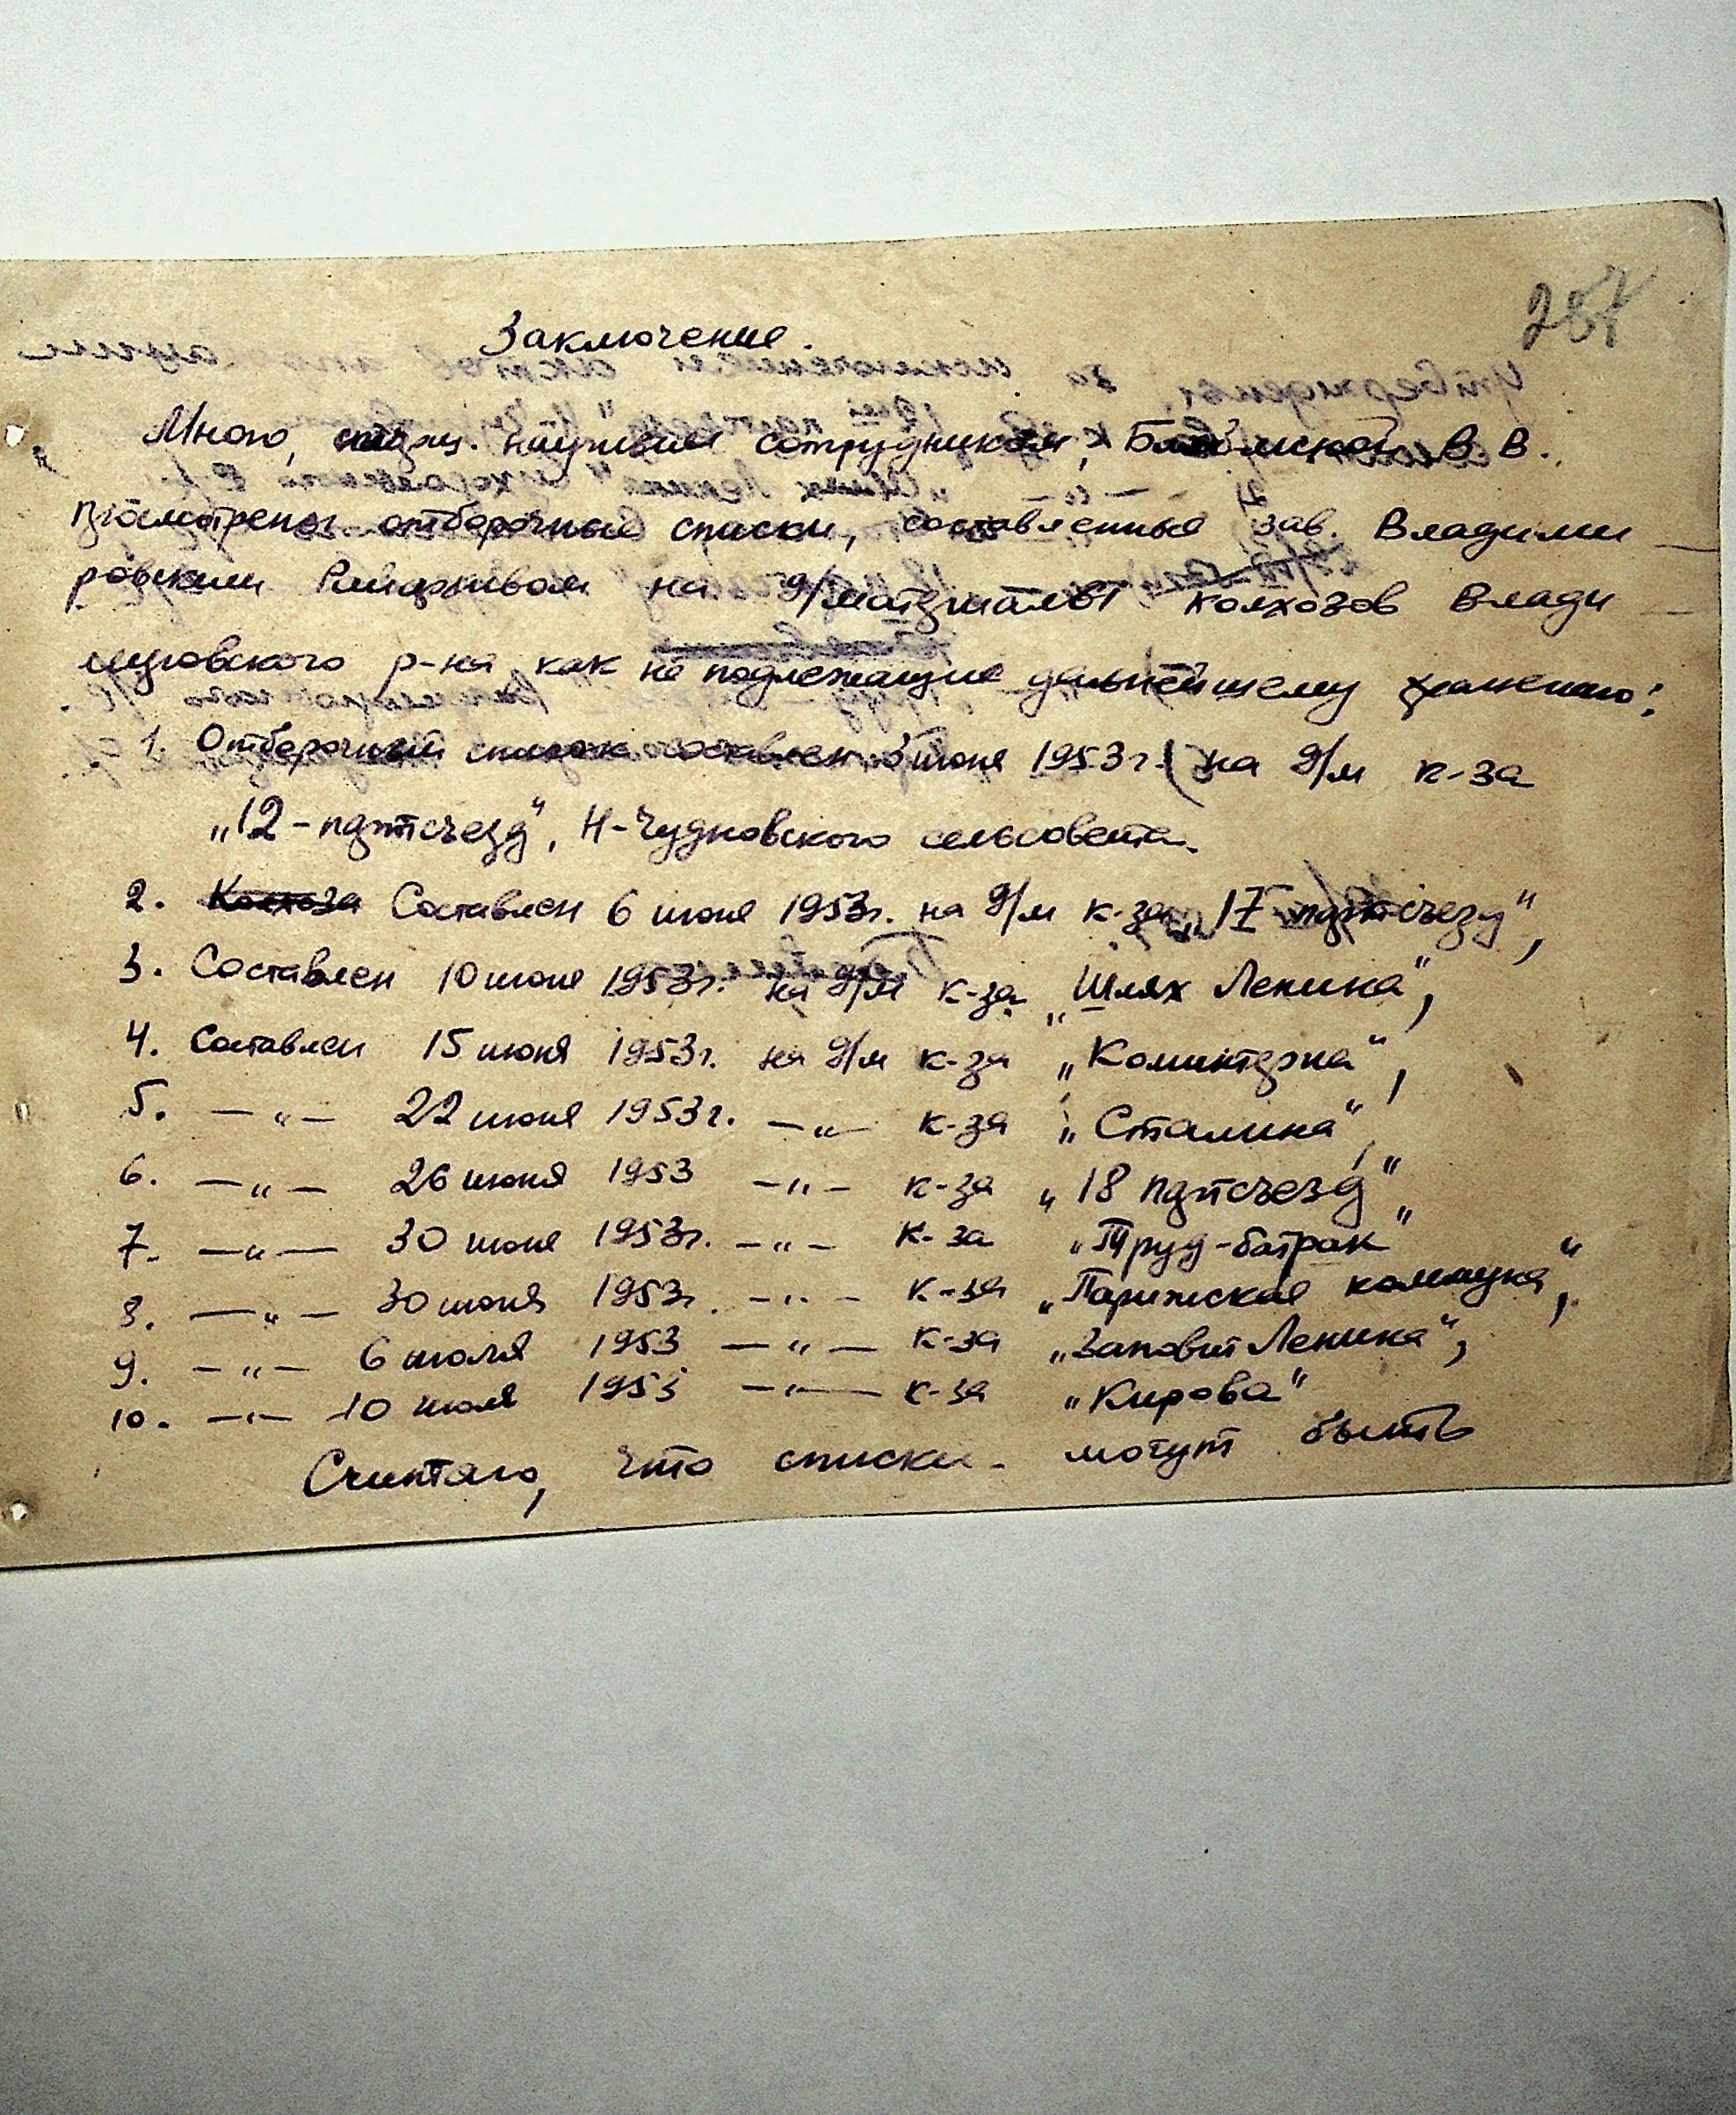 287
Заключение.
Мною, научным сотрудником, В. В.
просмотрены отборочные списки, составленные зав. Владими-
ровским Райархивом на д/материалы колхозов Влади-
мировского р-на как не подлежащие дальнейшему хранению:
1. Отборочный список составлен 3 июня 1953 г. на д/м к-за
„12-партсъезд“, Н-Чудновского сельсовета.
2. Колхоза Составлен 6 июня 1953г. на д/м к-за „17 партсъезд“,
3. Составлен 10 июня 1953г. на д/м к-за „Шлях Ленина“,
4. Составлен 15 июня 1953г. на д/м к-за „Коминтерна“,
5. —„— 22 июня 1953г. —„— к-за „Сталина“,
6. —„— 26 июня 1953 —„— к-за „18 партсъезд“
7. —„— 30 июня 1953г. —„— к-за „Труд-батрак“
8. —„— 30 июня 1953г. —„— к-за „Парижская коммуна“,
9. —„— 6 июля 1953 —„— к-за „Заповит Ленина“,
10. —„— 10 июля 1953 —„— к-за „Кирова“
Считаю, что списки могут быть